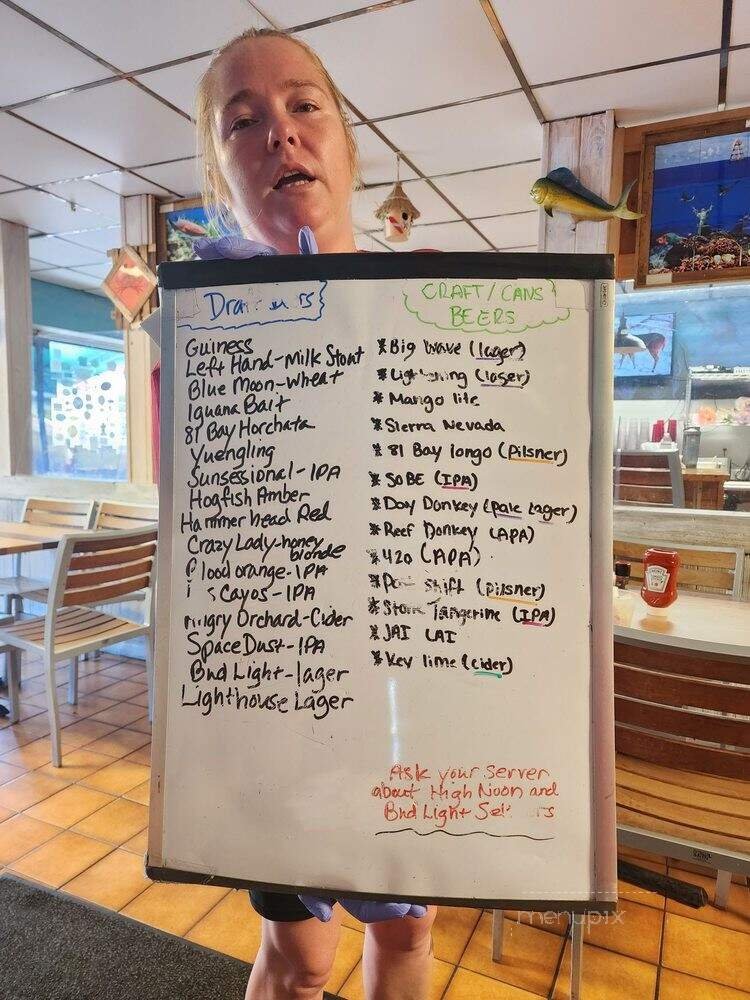 CRAFT/CANS
BEERS
Guiness
Left Hand-Milk Stout
Blue Moon-Wheat
Iguana Bait
81 Bay Horchata
Yuengling
Sunsessional-IPA
Hogfish Amber
Hammerhead Red
Crazy Lady-honey
blonde
lood orange-IPA
s Cayos-IPA
ngry Orchard-Cider
Space Dust-IPA
Bud Light-lager
Lighthouse Lager
* Big Wave (lager)
* Lightening (lager)
* Mango lite
* Sierra Nevada
* 81 Bay longo (Pilsner)
* SOBE (IPA)
* Day Donkey (pale Lager)
* Reef Donkey (APA)
* 420 (APA)
* shift (pilsner)
* Stone Tangerine (IPA)
* JAI LAI
* Key lime (cider)
Ask your server
about High Noon and
Bud Light
HEINZ
menupix